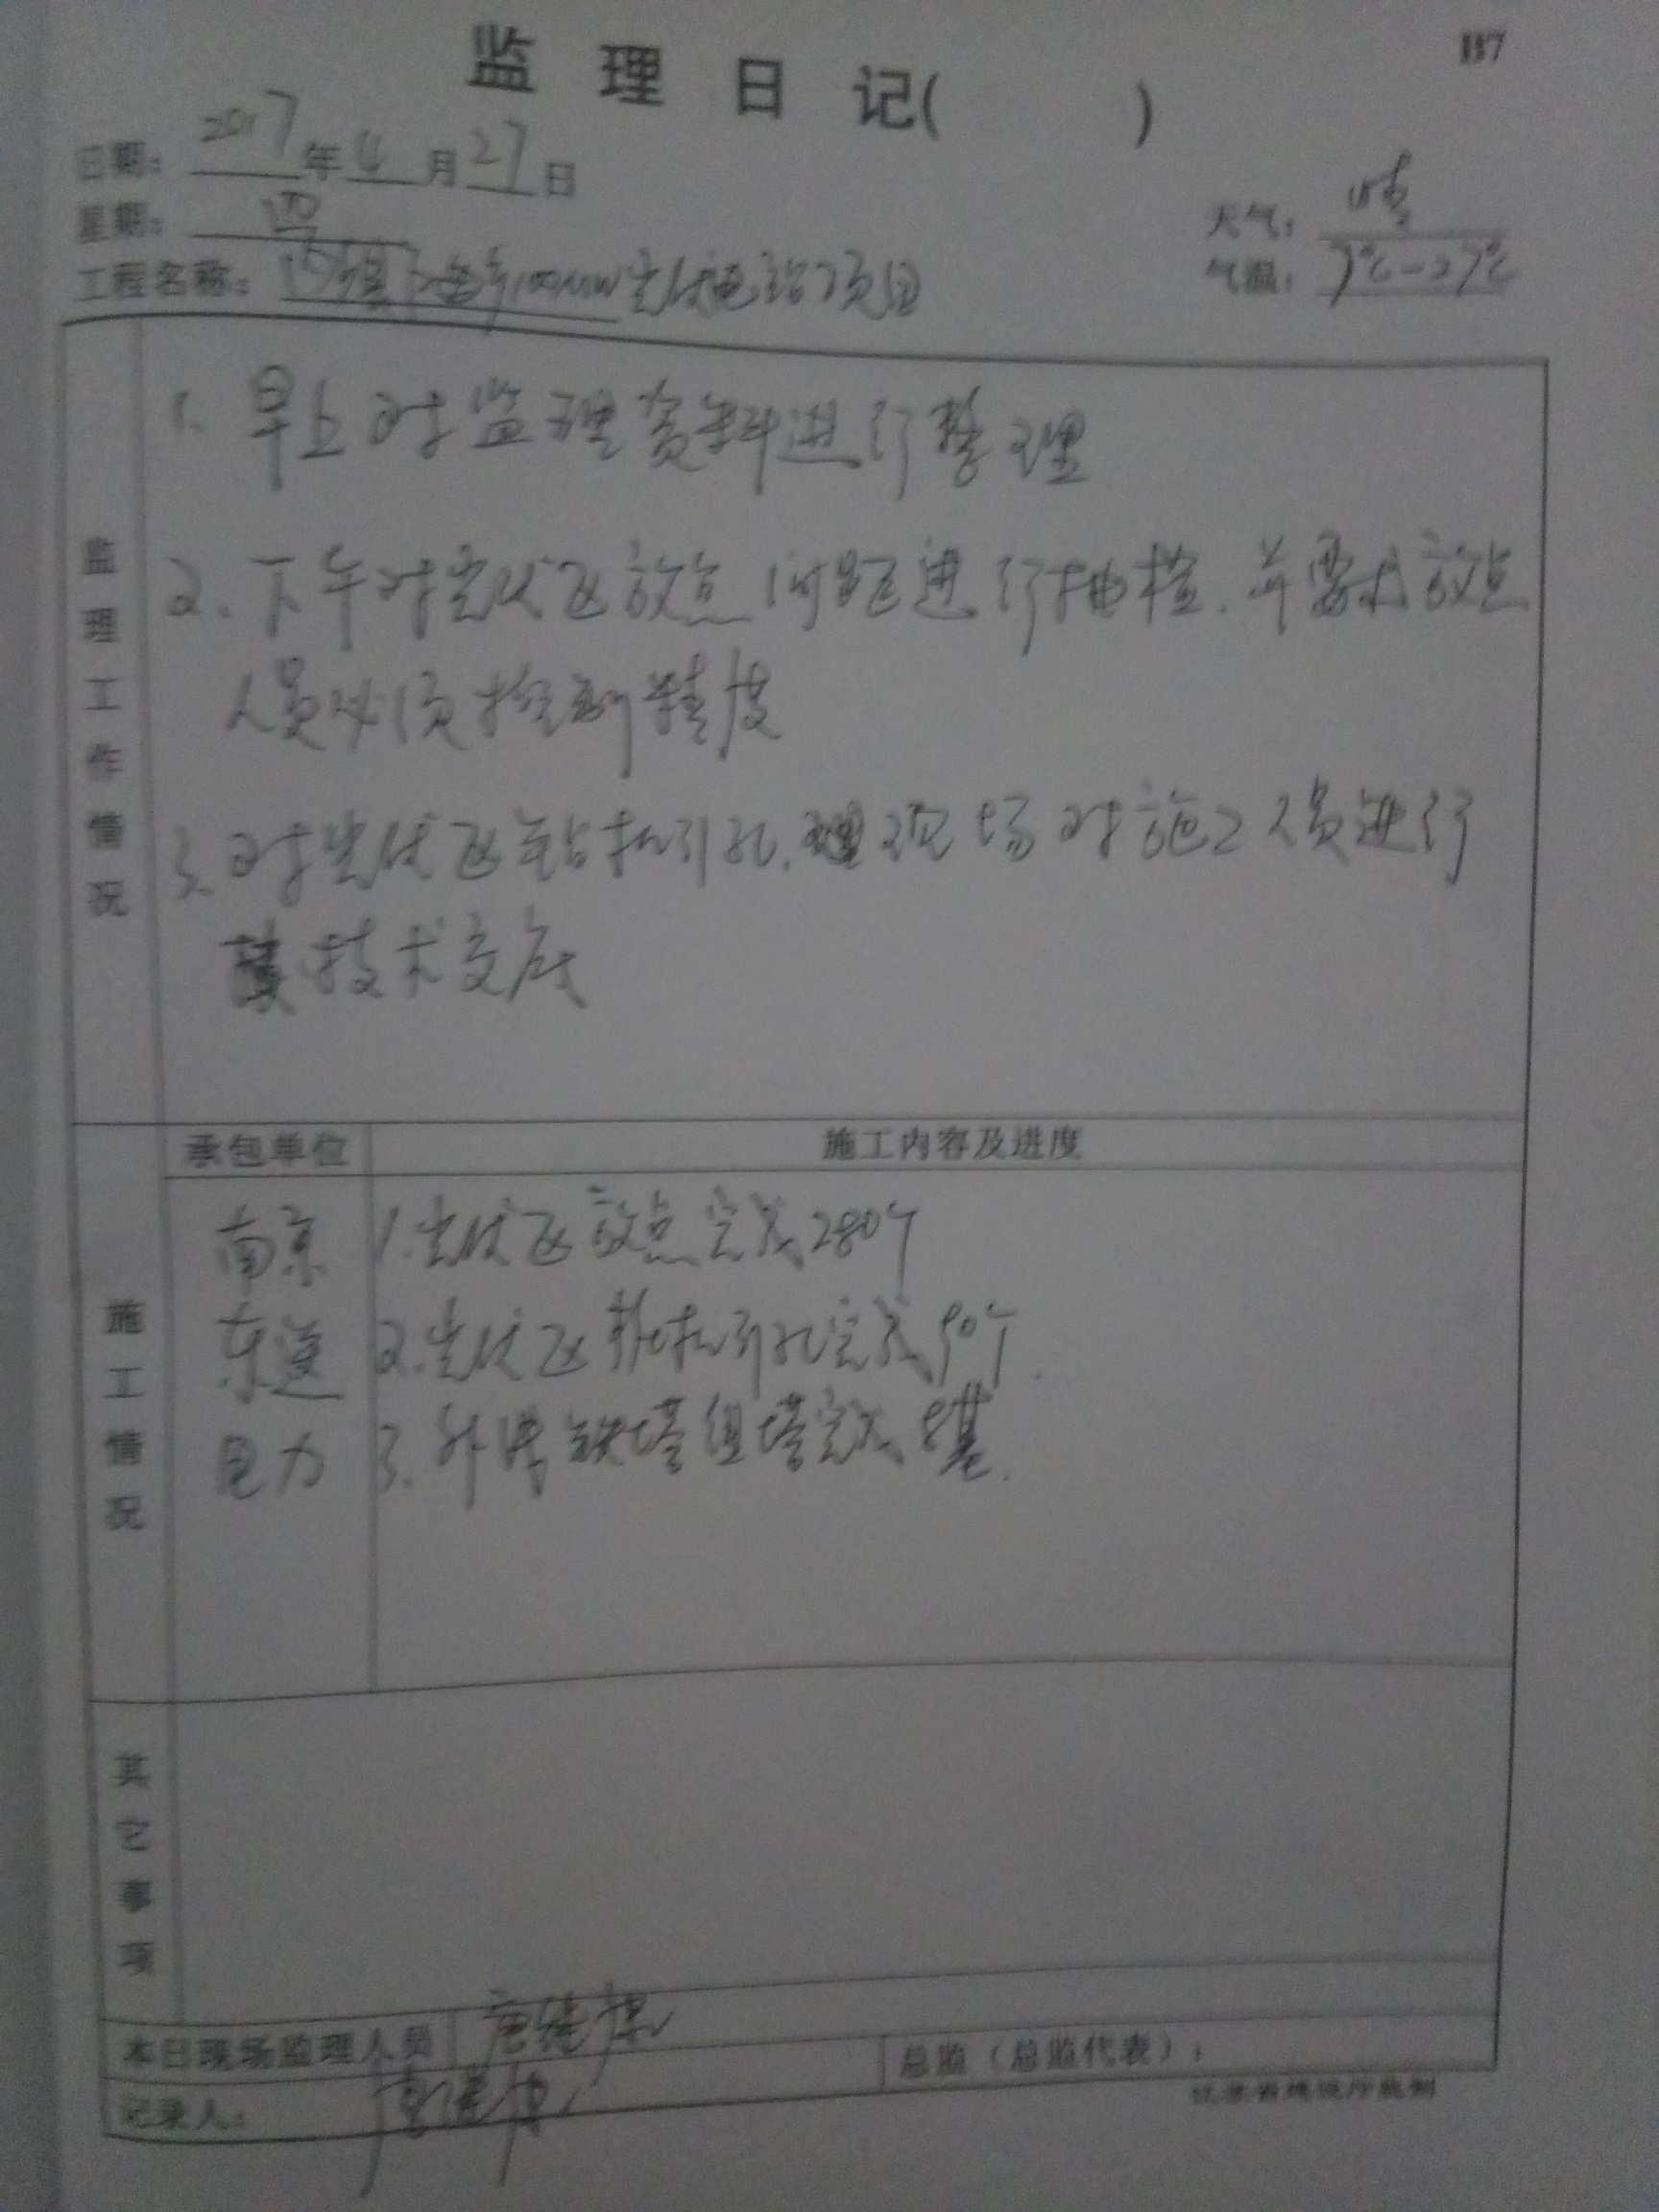 B7
监理日记( )
日期: 2017年4月27日
星期: 四
天气: 晴
气温: 7℃-27℃
工程名称: 100MW光伏电站项目
监理工作情况
1. 早上对监理资料进行整理
2. 下午对光伏区放点间距进行抽检.并要求放点
人员必须控制精度
3. 对光伏区钻机引孔.现场对施工人员进行
技术交底
承包单位 施工内容及进度
施工情况
南京 1.光伏区放点完成280个
东送 2.光伏区钻机引孔完成90个.
电力 3.外线铁塔组塔完成 基.
其它事项
本日现场监理人员
总监(总监代表):
记录人:
江苏省建设厅监制